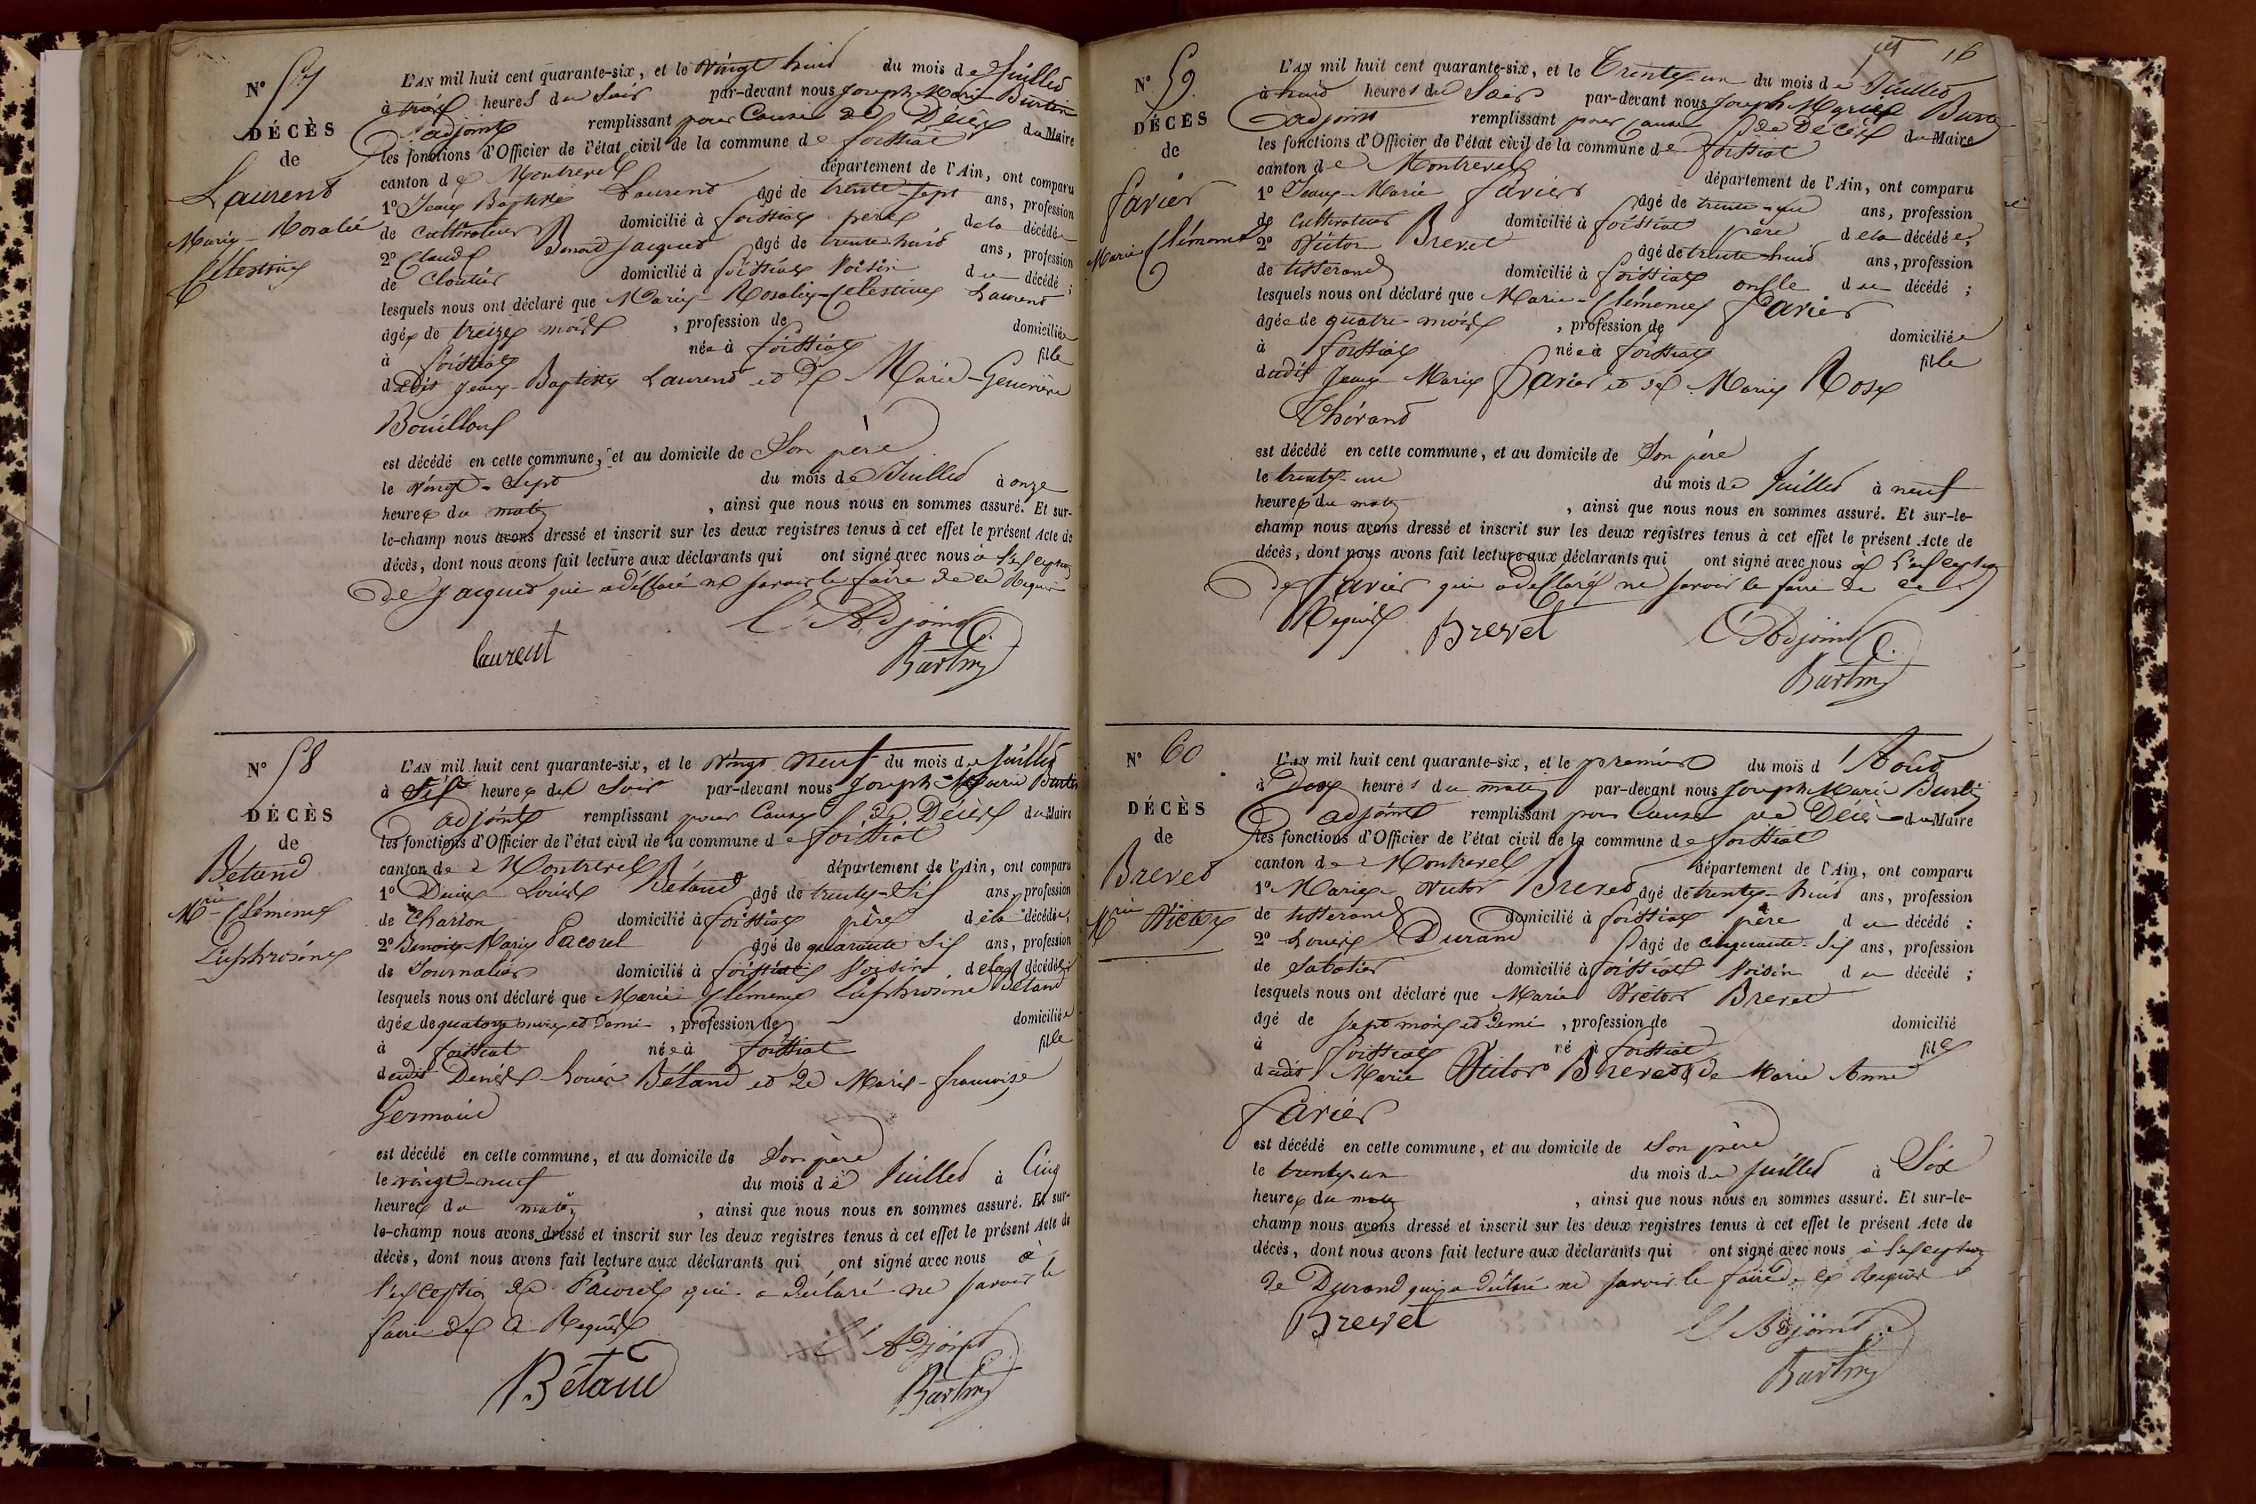 N° 57
DÉCÈS
de
Laurent
Marie-Rosalie
Célestine
L'AN mil huit cent quarante-six, et le vingt huit du mois de Juillet
à trois heures du soir par-devant nous Joseph Marie Burtin
adjoint remplissant pour Cause de Décès du Maire
les fonctions d'Officier de l'état civil de la commune de foissiat
canton de Montrevel département de l'Ain, ont comparu
1° Jean Baptiste Laurent âgé de trente-sept ans, profession
de cultivateur domicilié à foissiat père de la décédée
2° Claude Benoit Jacques âgé de trente huit ans, profession
de Cloutier domicilié à foissiat voisin du décédé ;
lesquels nous ont déclaré que Marie Rosalie-Célestine Laurent
âgée de treize mois , profession de domiciliée
à foissiat née à foissiat fille
dudit Jean-Baptiste Laurent et de Marie-Geneviève
Bouilloux
est décédé en cette commune, et au domicile de son père
le vingt-sept du mois de Juillet à onze
heures du matin , ainsi que nous nous en sommes assuré. Et sur-
le-champ nous avons dressé et inscrit sur les deux registres tenus à cet effet le présent Acte de
décès, dont nous avons fait lecture aux déclarants qui ont signé avec nous à l'exception
de Jacques qui a déclaré ne savoir le faire de ce Requis
L'Adjoint
laurent
Burtin
N° 58
DÉCÈS
de
Bétand
Mrie-Clémence
Euphrosine
L'AN mil huit cent quarante-six, et le vingt neuf du mois de Juillet
à six heures du soir par-devant nous Joseph Marie Burtin
adjoint remplissant pour Cause de Décès du Maire
les fonctions d'Officier de l'état civil de la commune de foissiat
canton de Montrevel département de l'Ain, ont comparu
1° Denis Louis Bétand âgé de trente-six ans, profession
de Charron domicilié à foissiat père de la décédée,
2° Benoit-Marie Pacorel âgé de quarante six ans, profession
de Journalier domicilié à foissiat voisin de la décédée
lesquels nous ont déclaré que Marie Clémence Euphrosine Bétand
âgée de quatorze mois et demi , profession de domiciliée
à foissiat née à foissiat fille
dudit Denis Louis Bétand et de Marie-francoise
Germain
est décédé en cette commune, et au domicile de son père
le vingt-neuf du mois de Juillet à Cinq
heures du matin , ainsi que nous nous en sommes assuré. Et sur-
le-champ nous avons dressé et inscrit sur les deux registres tenus à cet effet le présent Acte de
décès, dont nous avons fait lecture aux déclarants qui ont signé avec nous à
l'exception de Pacorel qui a déclaré ne savoir le
faire de ce Requis
L'Adjoint
Bétand
Burtin
16
N° 59
DÉCÈS
de
favier
Marie Clémence
L'AN mil huit cent quarante-six, et le Trente-un du mois de Juillet
à huit heures du Soir par-devant nous Joseph Marie Burtin
adjoint remplissant pour cause de Décès du Maire
les fonctions d'Officier de l'état civil de la commune de foissiat
canton de Montrevel département de l'Ain, ont comparu
1° Jean-Marie favier âgé de trente-un ans, profession
de cultivateur domicilié à foissiat père de la décédée,
2° Victor Brevet âgé de trente huit ans, profession
de tisserand domicilié à foissiat oncle du décédé ;
lesquels nous ont déclaré que Marie-Clémence favier
âgée de quatre mois , profession de domiciliée
à foissiat née à foissiat fille
dudit Jean-Marie favier et de Marie Rose
Thérand
est décédé en cette commune, et au domicile de son père
le trente-un du mois de Juillet à neuf
heures du matin , ainsi que nous nous en sommes assuré. Et sur-le-
champ nous avons dressé et inscrit sur les deux registres tenus à cet effet le présent Acte de
décès, dont nous avons fait lecture aux déclarants qui ont signé avec nous à l'exception
de favier qui a déclaré ne savoir le faire de ce
Requis
Brevet
L'Adjoint
Burtin
N° 60
DÉCÈS
de
Brevet
Mrie Victor
L'AN mil huit cent quarante-six, et le premier du mois d'Aout
à Dix heures du matin par-devant nous Joseph Marie Burtin
adjoint remplissant pour Cause de Décès du Maire
les fonctions d'Officier de l'état civil de la commune de foissiat
canton de Montrevel département de l'Ain, ont comparu
1° Marie Victor Brevet âgé de trente-huit ans, profession
de tisserand domicilié à foissiat père du décédé ;
2° Louis Durand âgé de cinquante-six ans, profession
de Sabotier domicilié à foissiat voisin du décédé ;
lesquels nous ont déclaré que Marie Victor Brevet
âgé de sept mois et demi , profession de domicilié
à foissiat né à foissiat fils
dudit Marie Victor Brevet & de Marie Anne
favier
est décédé en cette commune, et au domicile de son père
le trente-un du mois de Juillet à Six
heures du matin , ainsi que nous nous en sommes assuré. Et sur-le-
champ nous avons dressé et inscrit sur les deux registres tenus à cet effet le présent Acte de
décès, dont nous avons fait lecture aux déclarants qui ont signé avec nous à l'exception
de Durand qui a déclaré ne savoir le faire de ce Requis
Brevet
L'Adjoint
Burtin